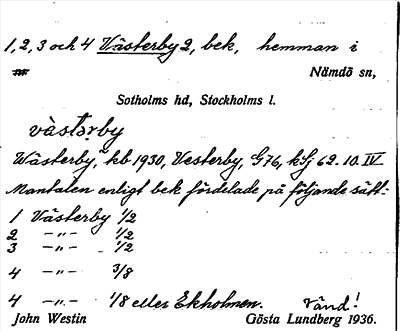 1, 2, 3 och 4 Västerby 2, bek, hemman i
Nämdö sn,
Sotholms hd, Stockholms l.
västərby
Wästerby, kb 1930, Vesterby, G 76, kLj 62. 10. IV
Mantalen enligt bek fördelade på följande sätt:
1 Västerby 1/2
2 -"- 1/2
3 -"- 1/2
4 -"- 3/8
4 -"- 1/8 eller Ekholmen. Vänd!
John Westin Gösta Lundberg 1936.